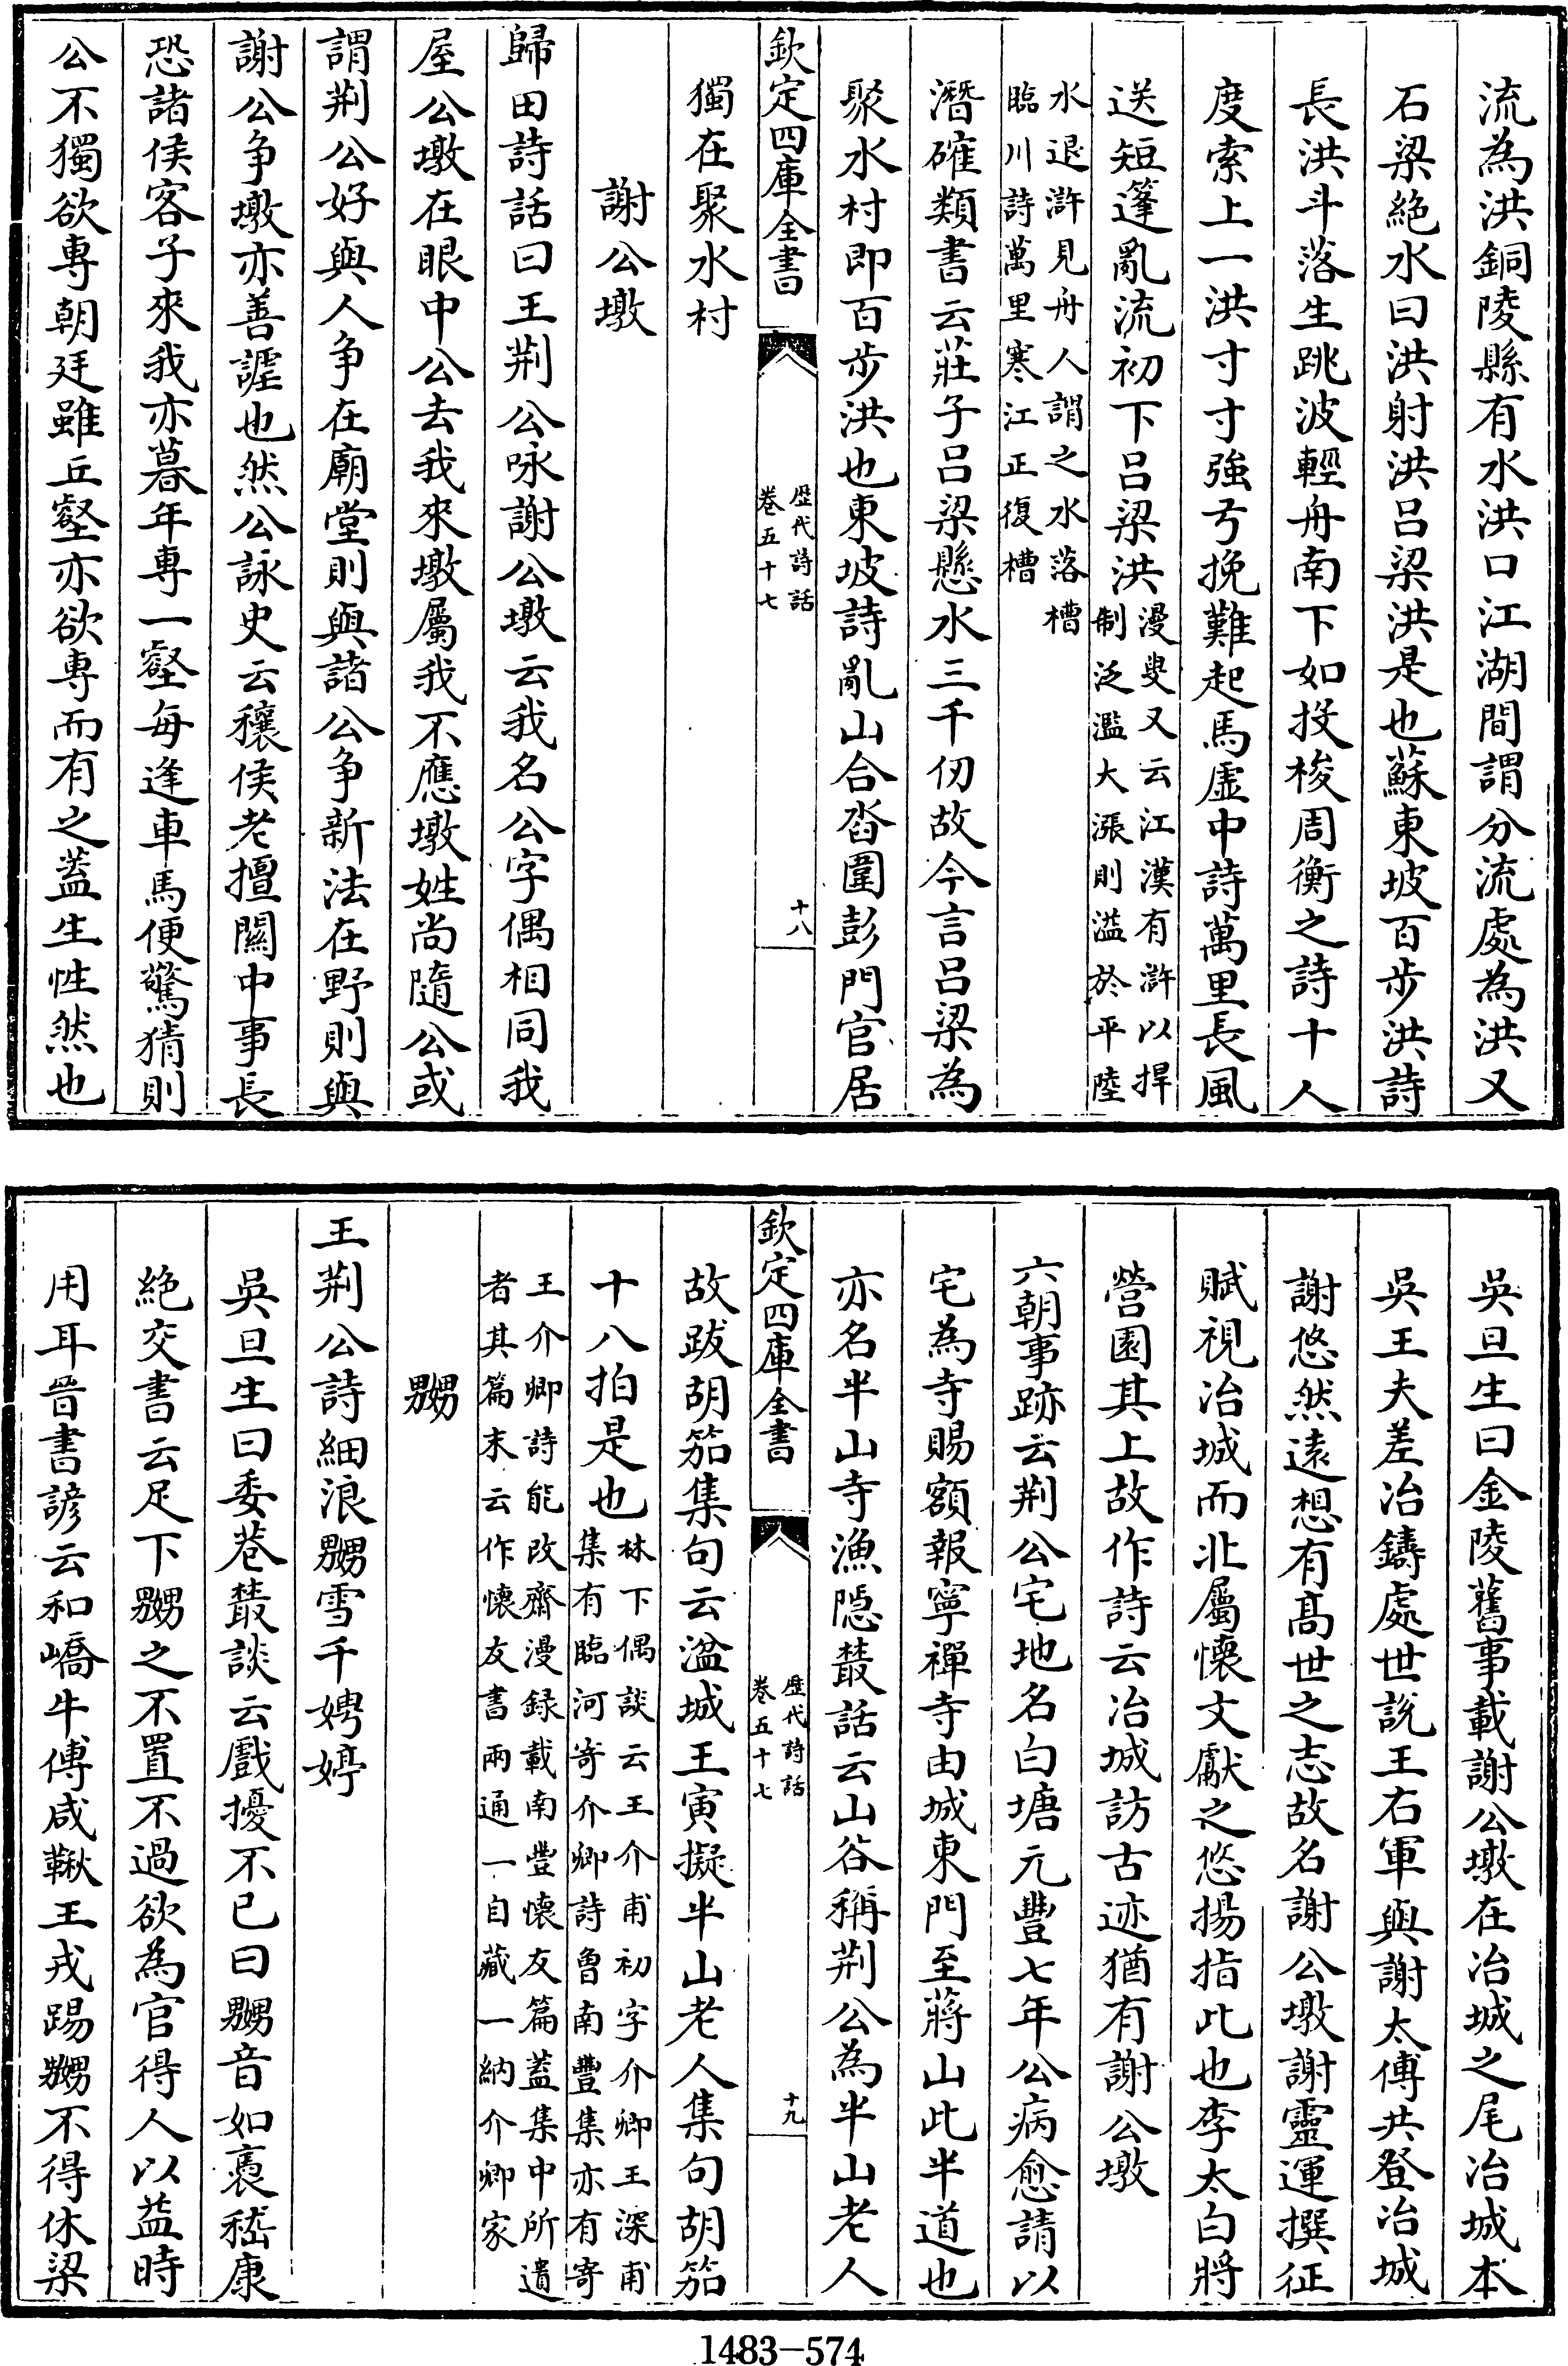 流為洪銅陵縣有水洪口江湖間謂分流處為洪又
石梁絶水曰洪射洪吕梁洪是也蘇東坡百步洪詩
長洪斗落生跳波輕舟南下如投梭周衡之詩十人
度索上一洪寸寸強弓挽難起馬虛中詩萬里長風
送短篷亂流初下吕梁洪
漫叟又云江漢有滸以捍
制泛濫大漲則溢於平陸
水退滸見舟人謂之水落槽
臨川詩萬里寒江正復槽
潛確類書云莊子吕梁懸水三千仞故今言吕梁為
聚水村即百步洪也東坡詩亂山合沓圍彭門官居
欽定四庫全書
歴代詩話
卷五十七
十八
獨在聚水村
謝公墩
歸田詩話曰王荆公咏謝公墩云我名公字偶相同我
屋公墩在眼中公去我來墩屬我不應墩姓尚隨公或
謂荆公好與人争在廟堂則與諸公争新法在野則與
謝公争墩亦善謔也然公詠史云穰侯老擅關中事長
恐諸侯客子來我亦暮年専一壑每逢車馬便驚猜則
公不獨欲専朝廷雖丘壑亦欲専而有之葢生性然也
吳旦生曰金陵舊事載謝公墩在冶城之尾冶城本
吳王夫差冶鑄處世說王右軍與謝太傅共登冶城
謝悠然逺想有髙世之志故名謝公墩謝靈運撰征
賦視冶城而北屬懷文獻之悠揚指此也李太白將
營園其上故作詩云冶城訪古迹猶有謝公墩
六朝事跡云荆公宅地名白塘元豐七年公病愈請以
宅為寺賜額報寧禪寺由城東門至蔣山此半道也
亦名半山寺漁隱叢話云山谷稱荆公為半山老人
欽定四庫全書
歴代詩話
卷五十七
十九
故跋胡笳集句云湓城王寅擬半山老人集句胡笳
十八拍是也
林下偶談云王介甫初字介卿王深甫
集有臨河寄介卿詩曽南豐集亦有寄
王介卿詩能改齋漫録載南豐懷友篇葢集中所遺
者其篇末云作懷友書兩通一自藏一納介卿家
嬲
王荆公詩細浪嬲雪千娉婷
吳旦生曰委巷叢談云戲擾不已曰嬲音如裊嵇康
絶交書云足下嬲之不置不過欲為官得人以益時
用耳晉書諺云和嶠牛傅咸鞦王戎踢嬲不得休梁
1483-574